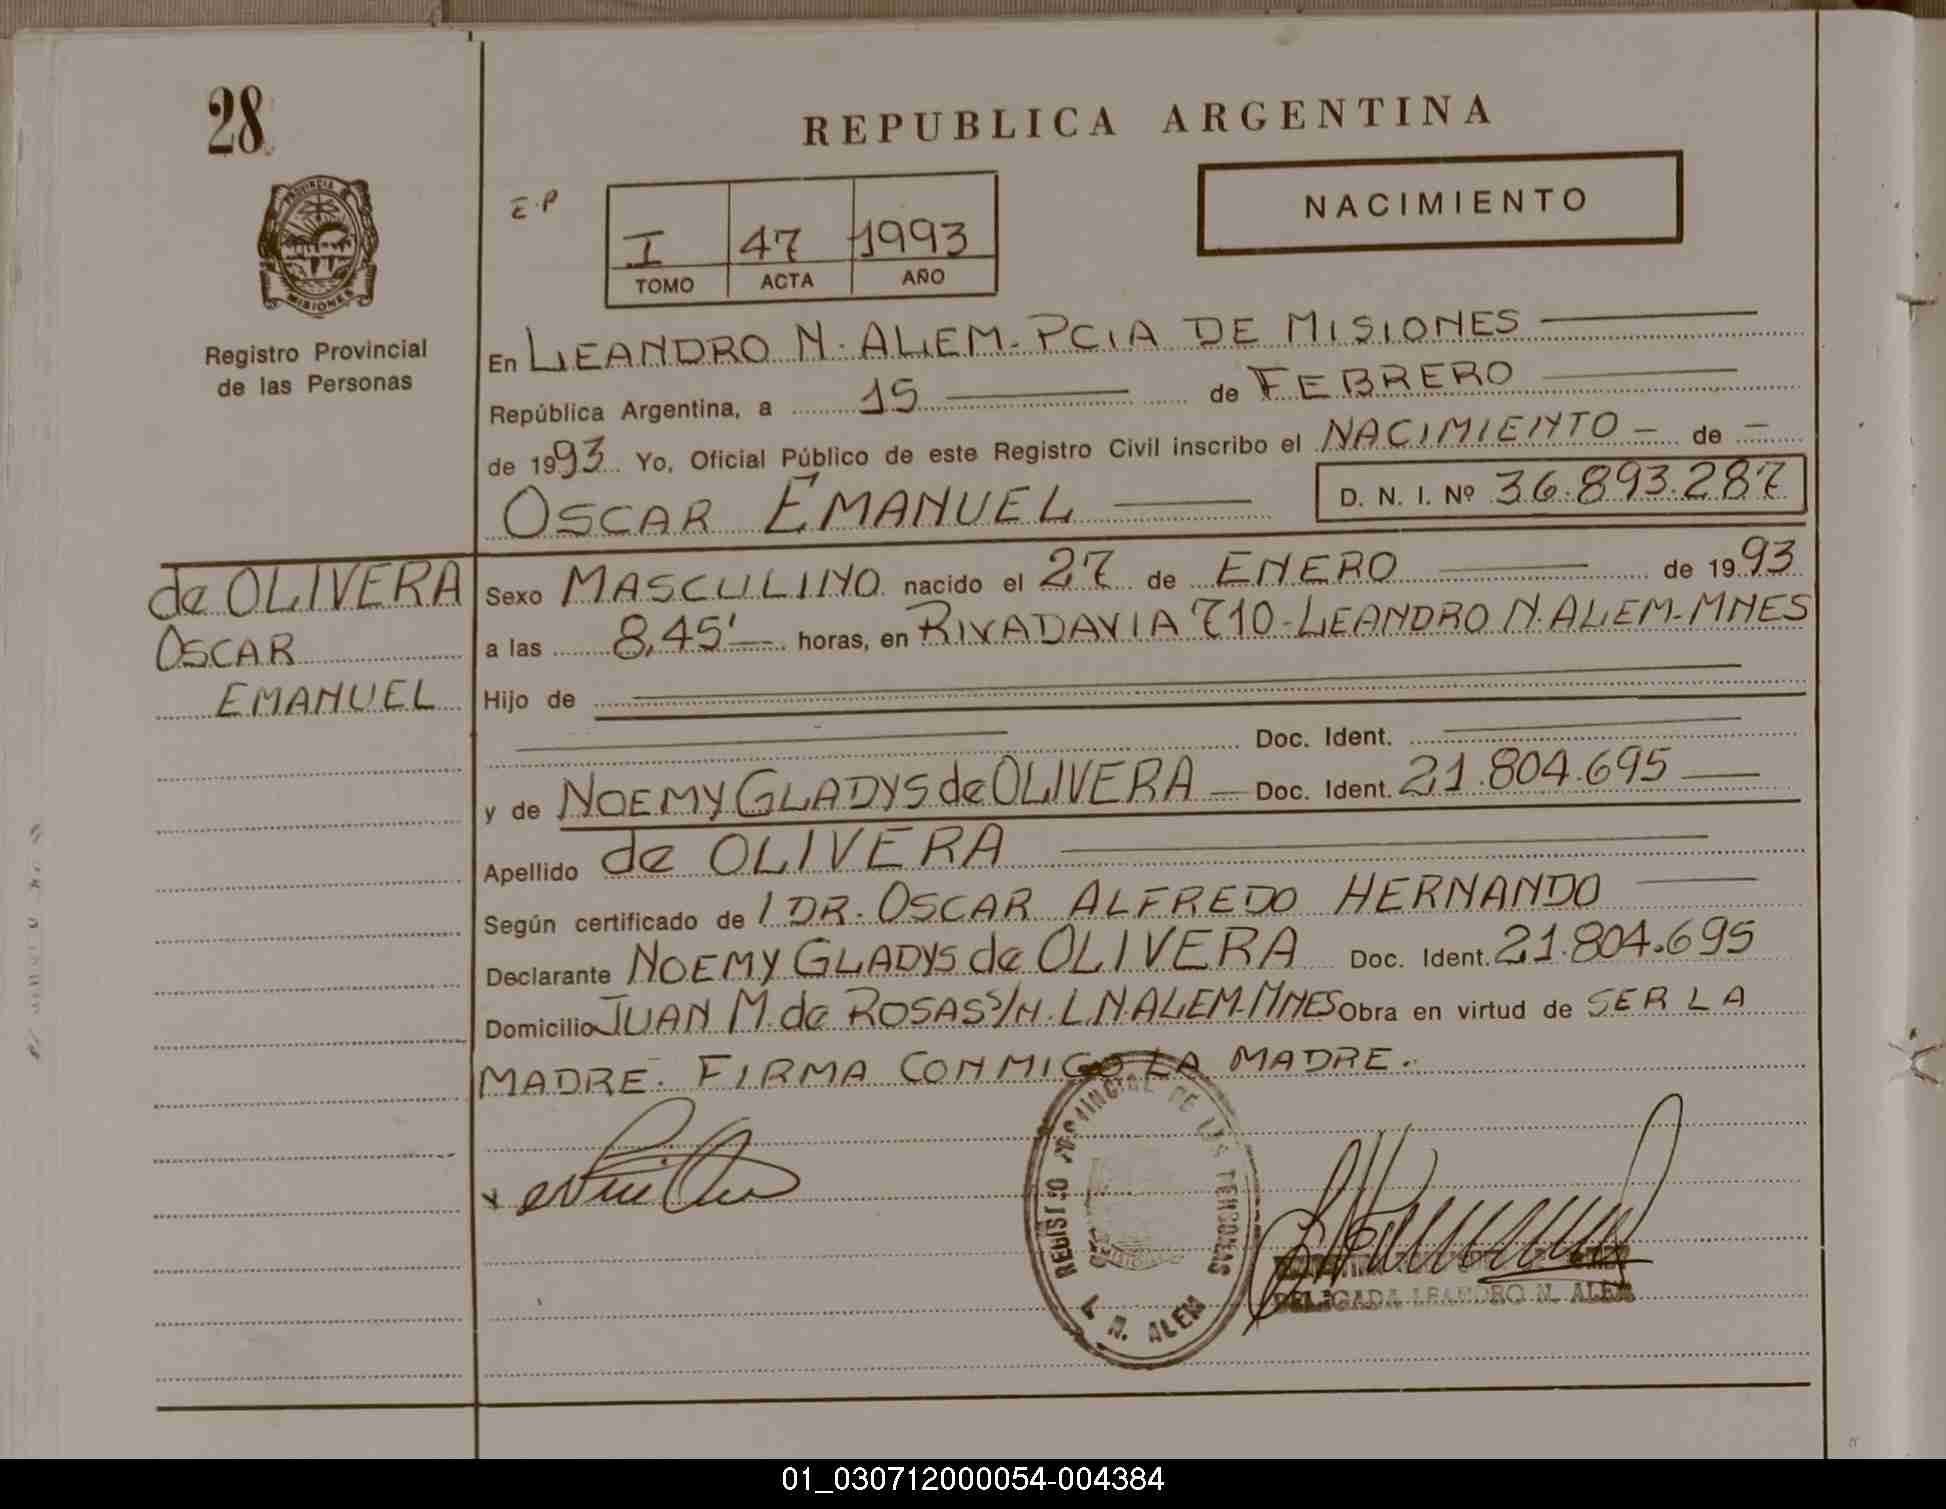 28
REPUBLICA ARGENTINA
PROVINCIA DE
MISIONES
Registro Provincial
de las Personas
E.P
I 47 1993
TOMO ACTA AÑO
NACIMIENTO
En LEANDRO N. ALEM - PCIA DE MISIONES
República Argentina, a 15 de FEBRERO
de 1993 Yo, Oficial Público de este Registro Civil inscribo el NACIMIENTO - de -
OSCAR EMANUEL D. N. I. Nº 36.893.287
de OLIVERA
OSCAR
EMANUEL
Sexo MASCULINO nacido el 27 de ENERO de 1993
a las 8,45'- horas, en RIVADAVIA 710 - LEANDRO N. ALEM - MNES
Hijo de
Doc. Ident.
y de NOEMY GLADYS de OLIVERA - Doc. Ident. 21.804.695
Apellido de OLIVERA
Según certificado de / DR. OSCAR ALFREDO HERNANDO
Declarante NOEMY GLADYS de OLIVERA Doc. Ident. 21.804.695
Domicilio JUAN M. de ROSAS S/N. L.N.ALEM-MNES Obra en virtud de SER LA
MADRE. FIRMA CONMIGO LA MADRE.
REGISTRO PROVINCIAL DE LAS PERSONAS
L. N. ALEM
DELEGADA LEANDRO N. ALEM
01_030712000054-004384